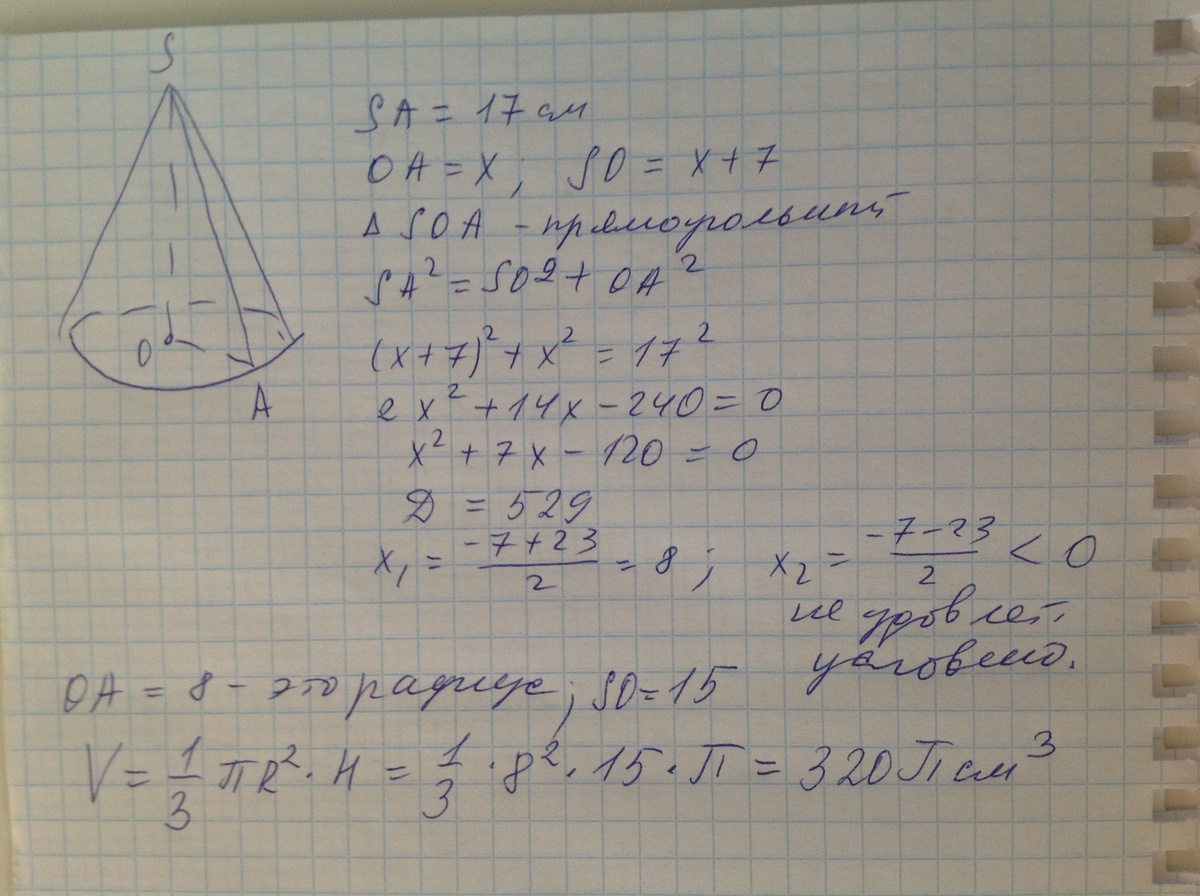 S
O
A
SA = 17 см
OA = x ; SO = x + 7
Δ SOA - прямоугольный
SA² = SO² + OA²
(x + 7)² + x² = 17²
2x² + 14x - 240 = 0
x² + 7x - 120 = 0
Д = 529
x₁ = (-7 + 23)/2 = 8 ; x₂ = (-7 - 23)/2 < 0
не удовлет.
условию.
OA = 8 - это радиус ; SO = 15
V = 1/3 πR² · H = 1/3 · 8² · 15 · П = 320 П см³